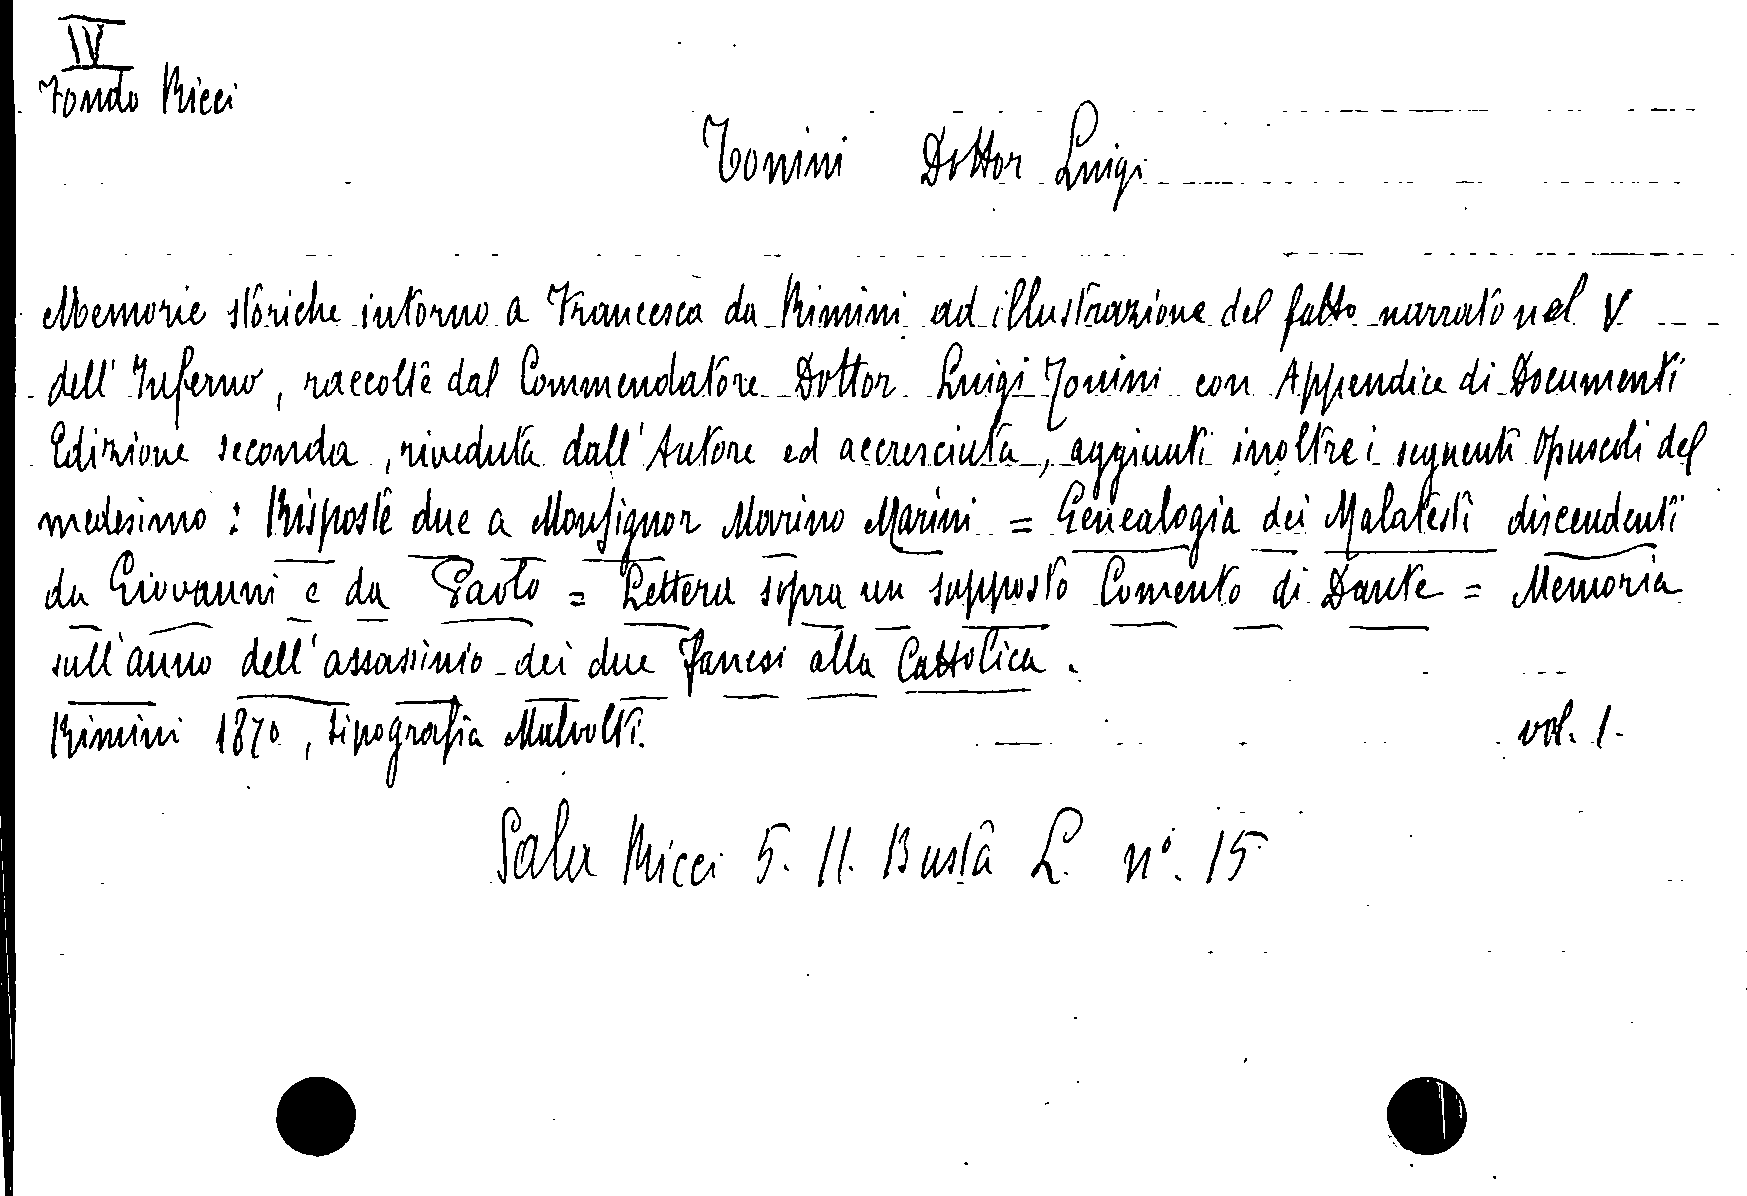 IV
Fondo Ricci
Tonini Dottor Luigi
Memorie storiche intorno a Francesca da Rimini ad illustrazione del fatto narrato nel V
dell' Inferno, raccolte dal Commendatore Dottor Luigi Tonini con Appendice di Documenti
Edizione seconda, riveduta dall'Autore ed accresciuta, aggiunti inoltre i seguenti opuscoli del
medesimo: Risposte due a Monsignor Marino Marini = Genealogia dei Malatesti discendenti
da Giovanni e da Paolo = Lettera sopra un supposto Comento di Dante = Memoria
sull'anno dell'assassinio dei due Fanesi alla Cattolica.
Rimini 1870, tipografia Malvolti. vol. 1.
Sala Ricci 5. II. Busta L. n°. 15